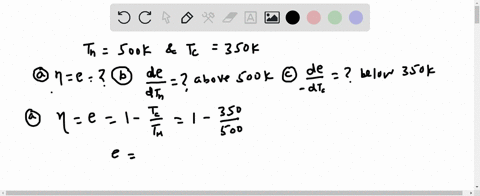 Tₕ = 500K & T_c = 350K
ⓐ η = e = ? ⓑ de/dTₕ = ? above 500K ⓒ de/-dT_c = ? below 350K
ⓐ η = e = 1 - T_c/T_H = 1 - 350/500
e =